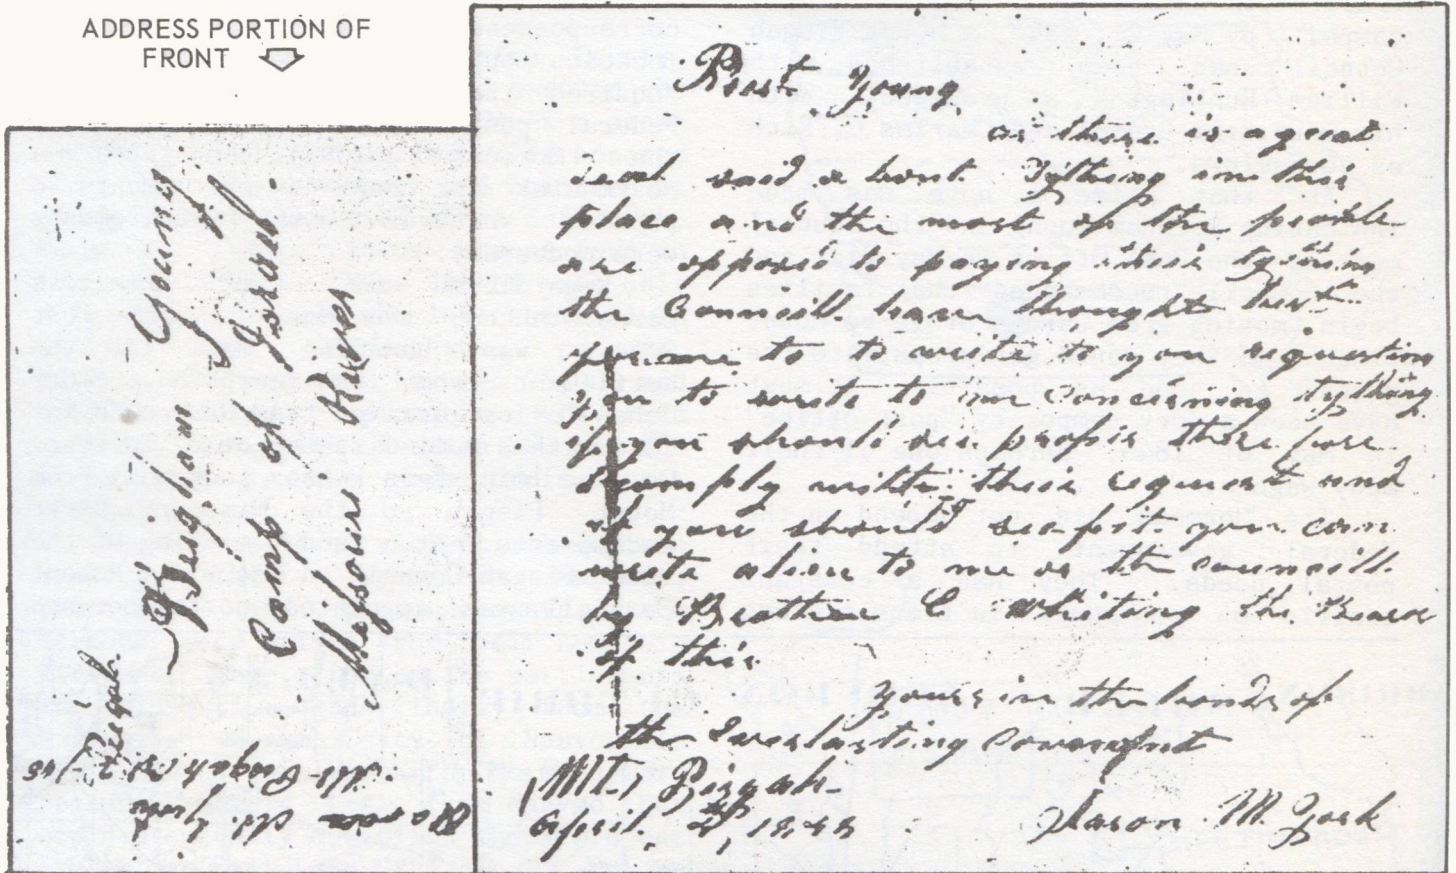 ADDRESS PORTION OF
FRONT
Brigham Young
Camp of Israel
Missouri River
Pisgah
Aaron M. York
Mt. Pisgah
Prest Young
as there is a great
deal said a bout Tything in this
place and the most of the people
are opposed to paying their tything
the Councill have thought best
for me to write to you requesting
you to write to me concerning tything
if you should see proper there fore
I comply with their request and
if you should see fit you can
write alien to me or the councill
by Brother C Whiting the Barer
of this
Yours in the bonds of
the Everlasting Covenant
Mt. Pisgah
April 2d 1848
Aaron M. York